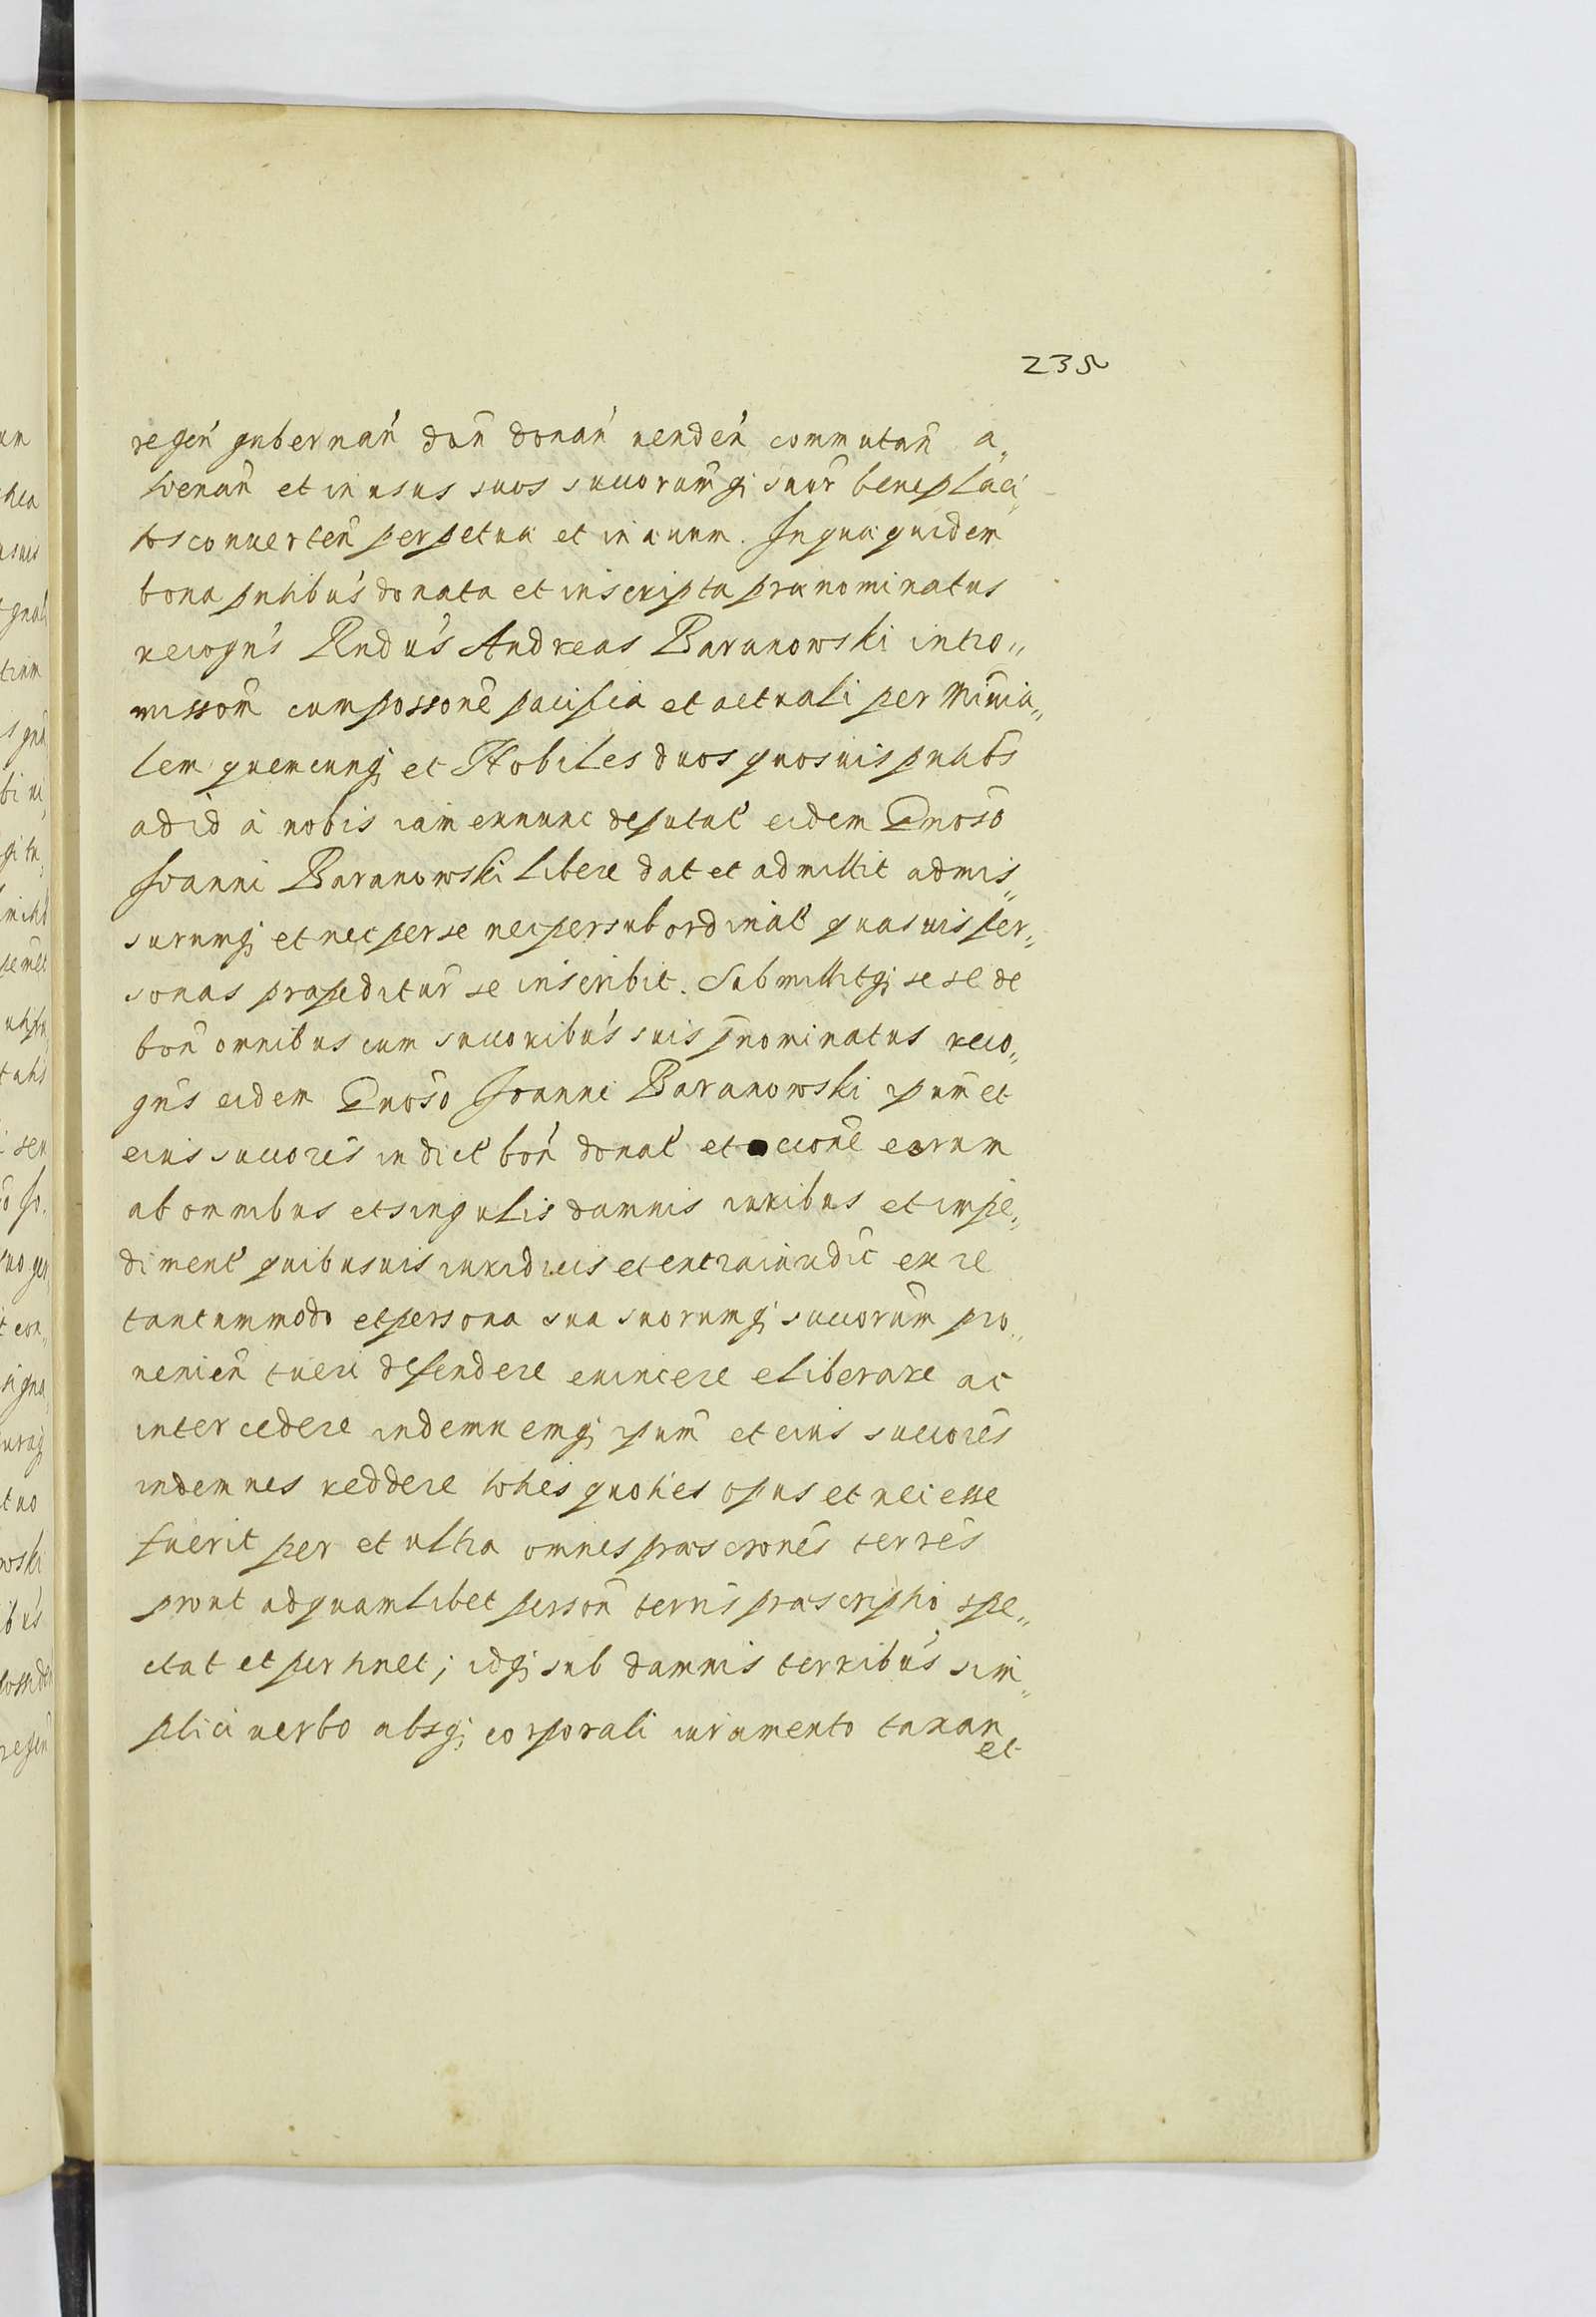 235
regeń gubernań dań donań uendeń commutań a„
lienań et in usus suos succorumq; suor̃ beneplaci„
tos conuerteń perpetua et in æuum. In qua quidem
bona pńtibus donata et inscripta prænominatus
recogńs Rndus Andreas Baranowski intro„
missom̃ cum possone pacifica et actuali per Minia„
lem quemcunq; et Nobiles duos quosuis pńtibs
ad id à nobis iam exnunc deputat eidem Gnoso
Joanni Baranowski libere dat et admittit admis„
surumq; et nec per se nec per subordinat quasuis per„
sonas præpeditur̃ se inscribit. Submittitq; se se de
boń omnibus cum succoribus suis pnominatus reco„
gńs eidem Gnoso Joanni Baranowski ipsum et
eius succores in dict boń donat et ccione eorum
ab omnibus et singulis damnis iuribus et impe„
diment quibusuis iuridicis et extraiudic ex re
tantummodo et persona sua suorumq; succorum pro„
uenień tueri defendere euincere eliberare ac
intercedere indemnemq; ipsum et eius succores
indemnes reddere toties quoties opus et necesse
fuerit per et ultra omnes præscrones terres
prout ad quamlibet persoń terris præscriptio spe„
ctat et pertinet; idq; sub damnis terribus sim„
plici uerbo absq; corporali iuramento taxan
et